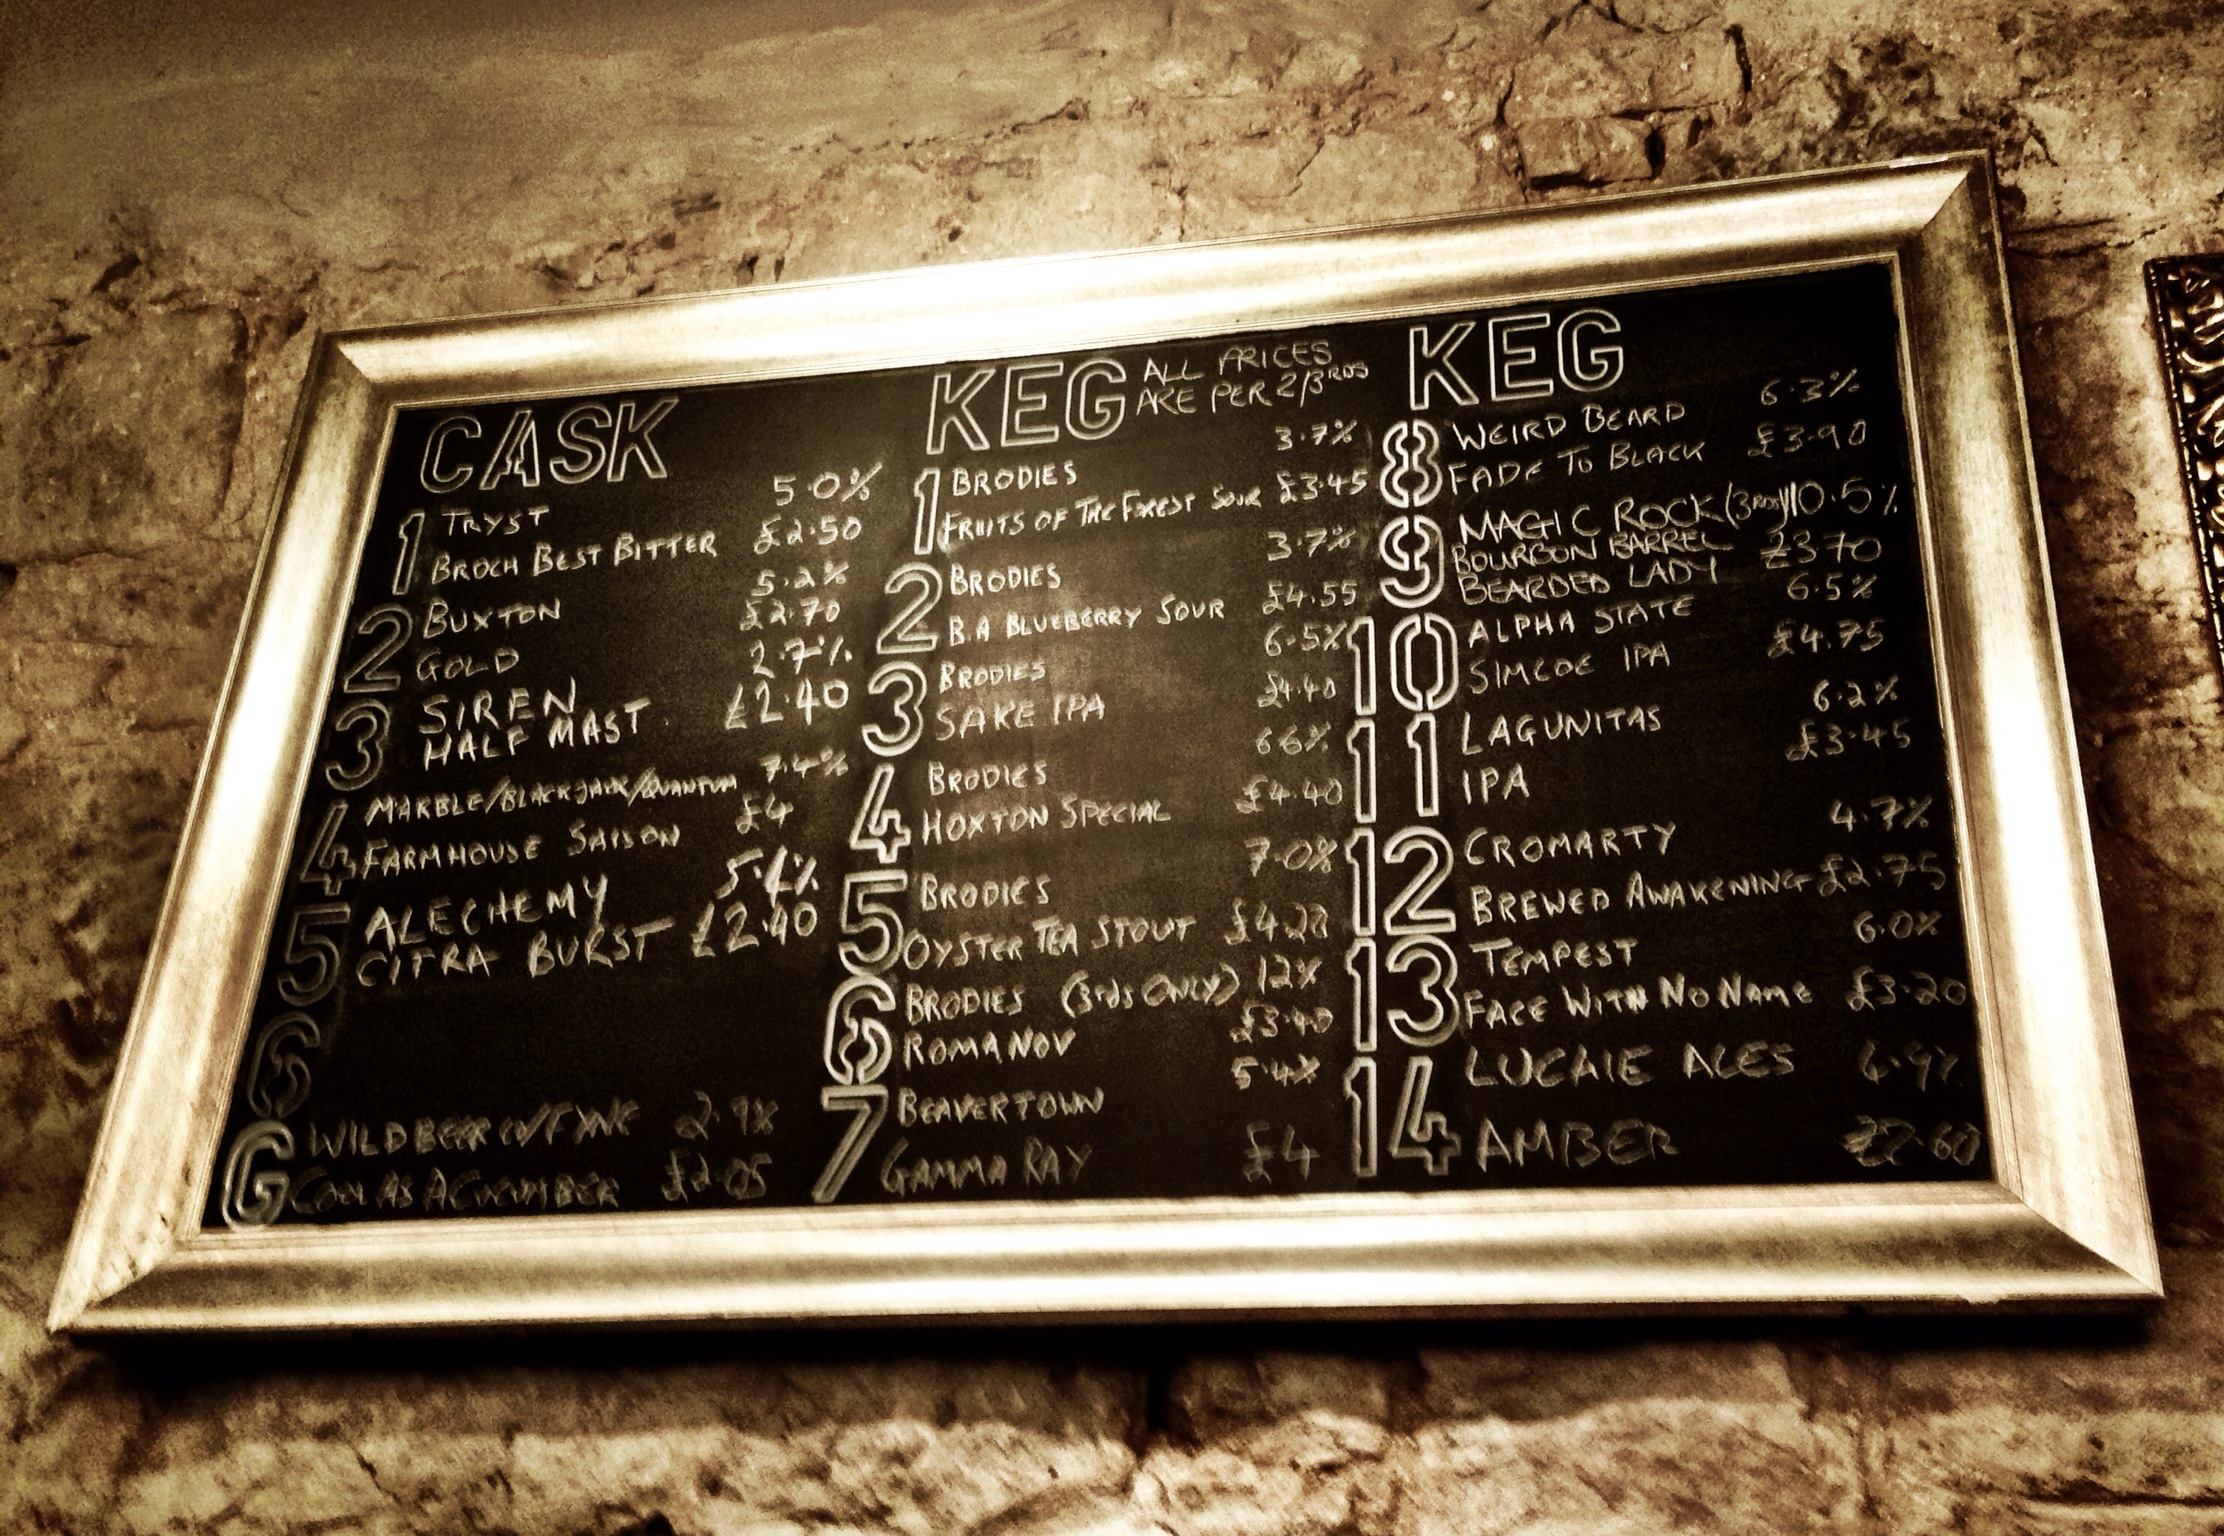 CASK
1 TRYST 5.0%
BROCH BEST BITTER £2.50
2 BUXTON 5.2%
GOLD £2.70
3 SIREN 2.7%
HALF MAST £2.40
4 MARBLE/BLACKJACK/QUANTUM 7.4%
FARMHOUSE SAISON £4
5 ALECHEMY 5.4%
CITRA BURST £2.40
6
G WILDBEER 2.9%
COOL AS A CUCUMBER £2.05
KEG ALL PRICES
ARE PER 2/3RDS
1 BRODIES 3.7%
FRUITS OF THE FOREST SOUR £3.45
2 BRODIES 3.7%
B.A BLUEBERRY SOUR £4.55
3 BRODIES 6.5%
SAKE IPA £4.40
4 BRODIES 6.6%
HOXTON SPECIAL £4.40
5 BRODIES 7.0%
OYSTER TEA STOUT
6 BRODIES (3rds ONLY) 12%
ROMANOV £3.40
7 BEAVERTOWN 5.4%
GAMMA RAY £4
KEG
8 WEIRD BEARD 6.3%
FADE TO BLACK £3.90
9 MAGIC ROCK (3RDS) 10.5%
BOURBON BARREL £3.70
BEARDED LADY
10 ALPHA STATE 6.5%
SIMCOE IPA £4.75
11 LAGUNITAS 6.2%
IPA £3.45
12 CROMARTY 4.7%
BREWED AWAKENING £2.75
13 TEMPEST 6.0%
FACE WITH NO NAME £3.20
14 LUCKIE ALES
AMBER